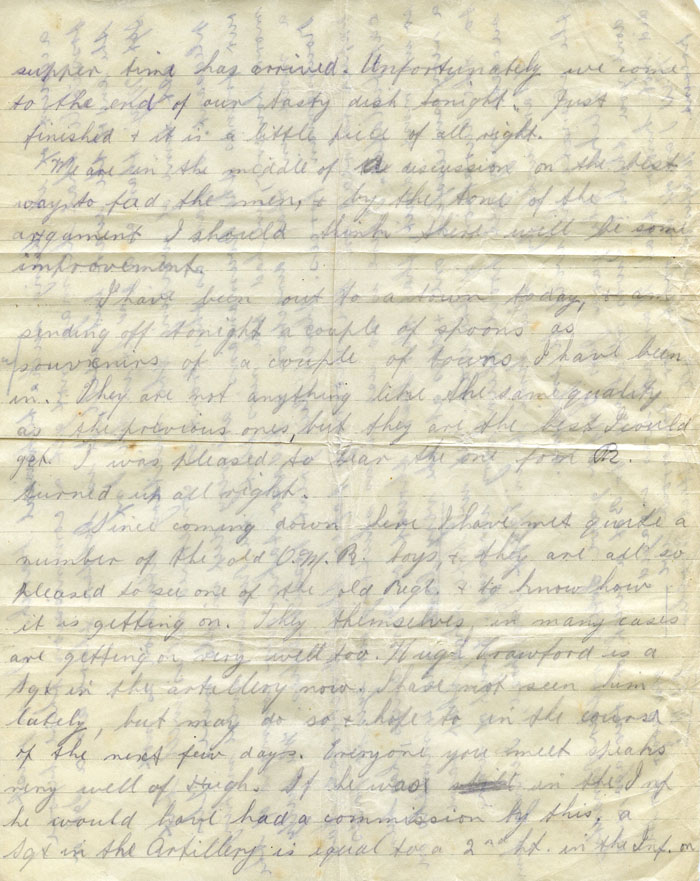 supper time has arrived. Unfortunately we come
to the end of our tasty dish tonight. Just
finished & it is a little piece of all right.
We are in the middle of a discussion on the best
way to feed the men, & by the tone of the
argament I should think there will be some
improvement.
I have been out to a town today, & am
sending off tonight a couple of spoons as
souvenirs of a couple of towns I have been
in. They are not anything like the same quality
as the previous ones, but they are the best I could
get. I was pleased to hear the one from
turned up all right.
Since coming down here I have met quite a
number of the old O.M.R. boys, & they are all so
pleased to see one of the old Regt & to know how
it is getting on. They themselves, in many cases
are getting on very well too. Hugh Crawford is a
Sgt in the artillery now. I have not seen him
lately, but may do so & hope to in the course
of the next few days. Everyone you meet speaks
very well of Hugh. If he was in the Inf
he would have had a commission by this, a
Sgt in the Artillery is equal to a 2nd Lt. in the Inf. on